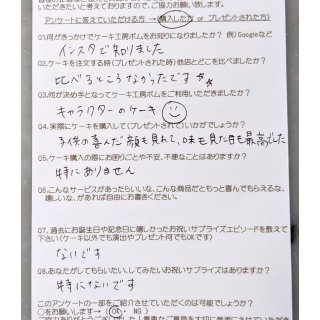 いただきたいと考えておりますので、ご協力お願い致します。
アンケートに答えていただける方 → (購入した方 or プレゼントされた方)
Q1.何がきっかけでケーキ工房ボムをお知りになりましたか? 例)Googleなど
インスタで知りました
Q2.ケーキを注文する時(プレゼントされた時)他店とどこを比べましたか?
比べるところなかったです☆☆
Q3.何が決め手となってケーキ工房ボムをご利用いただきましたか?
キャラクターのケーキ
Q4.実際にケーキを購入して(プレゼントされて)いかがでしょうか?
子供の喜んだ顔も見れて、味も見た目も最高でした
Q5.ケーキ購入の際にお困りごとや不安、不便なことはありますか?
特にありません
Q6.こんなサービスがあったらいいな、こんな商品だともっと喜んでもらえるな、
嬉しいな、があれば自由にお書きください。
Q7.過去にお誕生日や記念日に嬉しかったお祝いサプライズエピソードを教えて
下さい(ケーキ以外でも演出やプレゼント何でもOKです)
ないです
Q8.あなたがしてもらいたい、してみたいお祝いサプライズはありますか?
特にないです
このアンケートの一部をご紹介させていただくのは可能でしょうか?
○をお願いします→ (OK ・ NG )